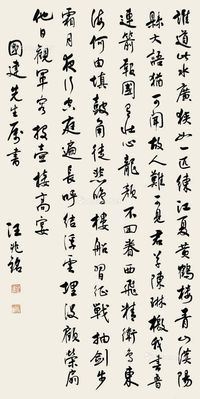 誰道此水廣狹如一匹練江夏黃鶴樓青山漢陽
縣大語猶可聞故人難可見君草陳琳檄我書魯
連箭報國有壯心龍顏不回眷西飛精衛鳥東
海何由填鼓角徒悲鳴樓船習征戰抽劍步
霜月夜行空庭遍長呼結浮雲埋沒顧榮扇
他日觀軍容投壺接高宴
國建先生屬書
汪兆銘